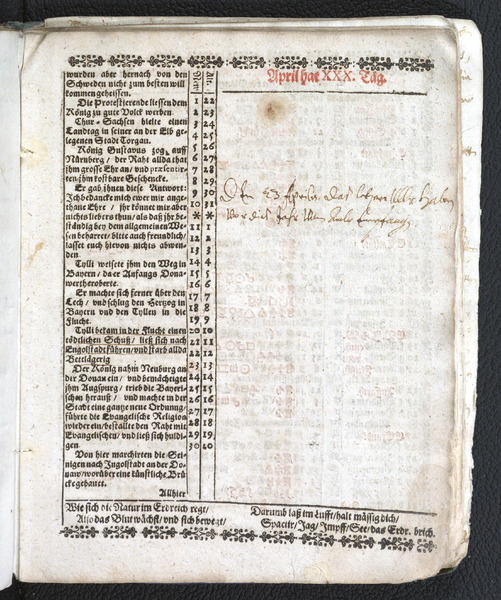 April hat XXX. Tag.
wurden aber hernach von den
Schweden nicht zum besten will
kommen geheissen.
Die Protestierende liessen dem
König zu gute Volck werben.
Chur-Sachsen hielte einen
Landtag in seiner an der Elb ge-
legenen Stadt Torgau.
König Gustavus zog auff
Nürnberg / der Raht allda that
ihm grosse Ehr an / und præsentir-
ten ihm kostbare Geschencke.
Er gab ihnen diese Antwort:
Ich bedancke mich ewer mir ange-
thane Ehre / ihr könnet mir aber
nichts liebers thun / als daß ihr be-
ständig bey dem allgemeinen We-
sen beharret / bitte auch freundlich /
lasset euch hievon nichts abwen-
den.
Tylli weisete ihm den Weg in
Bayern / da er Anfangs Dona-
werth eroberte.
Er machte sich ferner über den
Lech / und schlug den Hertzog in
Bayern und den Tyllen in die
Flucht.
Tylli bekam in der Flucht einen
tödtlichen Schuß / ließ sich nach
Engolstadt führen / und starb allda
Bettlägerig
Der König nahm Neuburg an
der Donau ein / und bemächtigte
ihm Augspurg / trieb die Bayeri-
schen herauß / und machte in der
Stadt eine gantze neue Ordnung /
führte die Evangelische Religion
wieder ein / bestallte den Raht mit
Evangelischen / und ließ sich huldi-
gen.
Von hier marchirten die Sei-
nigen nach Ingolstadt an der Do-
naw / worüber eine künstliche Brü-
cke gebauet.
Allhier
New Alt.
1 22
2 23
3 24
4 25
5 26
6 27
7 28
8 29
9 30
10 31
* *
11 1
12 2
13 3
14 4
15 5
16 6
17 7
18 8
19 9
20 10
21 11
22 12
23 13
24 14
25 15
26 16
27 17
28 18
29 19
30 20
Den 23 April das
Vor dies Jahr
Wie sich die Natur im Erdreich regt /
Also das Blut wächst / und sich bewegt /
Darumb laß im Lufft / halt mässig dich /
Spacir / Jag / Impff / See / das Erdr. brich.